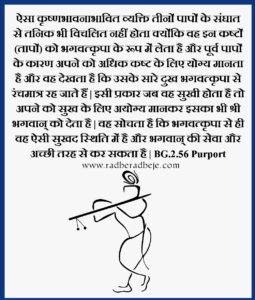 ऐसा कृष्णभावनाभावित व्यक्ति तीनों पापों के संघात
से तनिक भी विचलित नहीं होता क्योंकि वह इन कष्टों
(तापों) को भगवत्कृपा के रूप में लेता है और पूर्व पापों
के कारण अपने को अधिक कष्ट के लिए योग्य मानता
है और वह देखता है कि उसके सारे दुख भगवत्कृपा से
रंचमात्र रह जाते हैं | इसी प्रकार जब वह सुखी होता है तो
अपने को सुख के लिए अयोग्य मानकर इसका भी भी
भगवान् को देता है | वह सोचता है कि भगवत्कृपा से ही
वह ऐसी सुखद स्थिति में है और भगवान् की सेवा और
अच्छी तरह से कर सकता है | BG.2.56 Purport
www.radheradheje.com